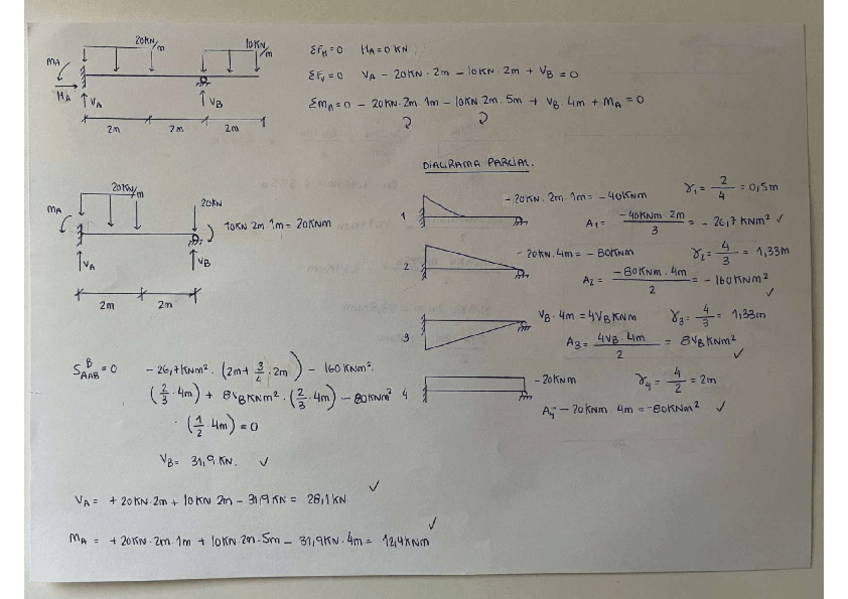 20KN/m
10KN/m
MA
HA
VA
VB
2m 2m 2m
ΣFH=0 HA=0 KN
ΣFV=0 VA - 20KN·2m - 10KN·2m + VB = 0
ΣmA=0 - 20KN·2m·1m - 10KN·2m·5m + VB·4m + MA = 0
DIAGRAMA PARCIAL.
20KN/m
20KN
MA
10KN·2m·1m = 20KNm
VA
VB
2m 2m
1
-20KN·2m·1m = -40KNm
γ1 = 2/4 = 0,5m
A1 = -40KNm·2m/3 = -26,7KNm² ✓
2
-20KN·4m = -80KNm
γ2 = 4/3 = 1,33m
A2 = -80KNm·4m/2 = -160KNm² ✓
3
VB·4m = 4VB KNm
γ3 = 4/3 = 1,33m
A3 = 4VB·4m/2 = 8VB KNm² ✓
4
-20KNm
γ4 = 4/2 = 2m
A4 = -20KNm·4m = -80KNm² ✓
S^B AAB = 0 - 26,7KNm²·(2m + 3/4·2m) - 160KNm²·
(2/3·4m) + 8VB KNm²·(2/3·4m) - 80KNm²
·(1/2·4m) = 0
VB = 31,9KN. ✓
VA = +20KN·2m + 10KN·2m - 31,9KN = 28,1KN ✓
MA = +20KN·2m·1m + 10KN·2m·5m - 31,9KN·4m = 12,4KNm ✓